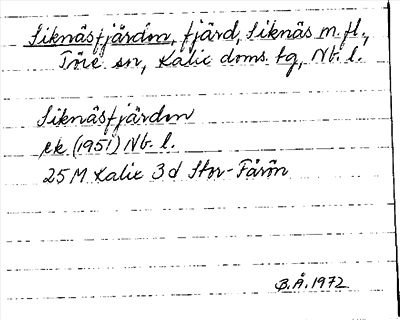 Siknäsfjärden, fjärd, Siknäs m. fl.,
Töre sn, Kalix doms. tg, Nb. l.
Siknäsfjärden
ek (1951) Nb. l.
25 M Kalix 3 d Stor-Fårön
B.Å. 1972